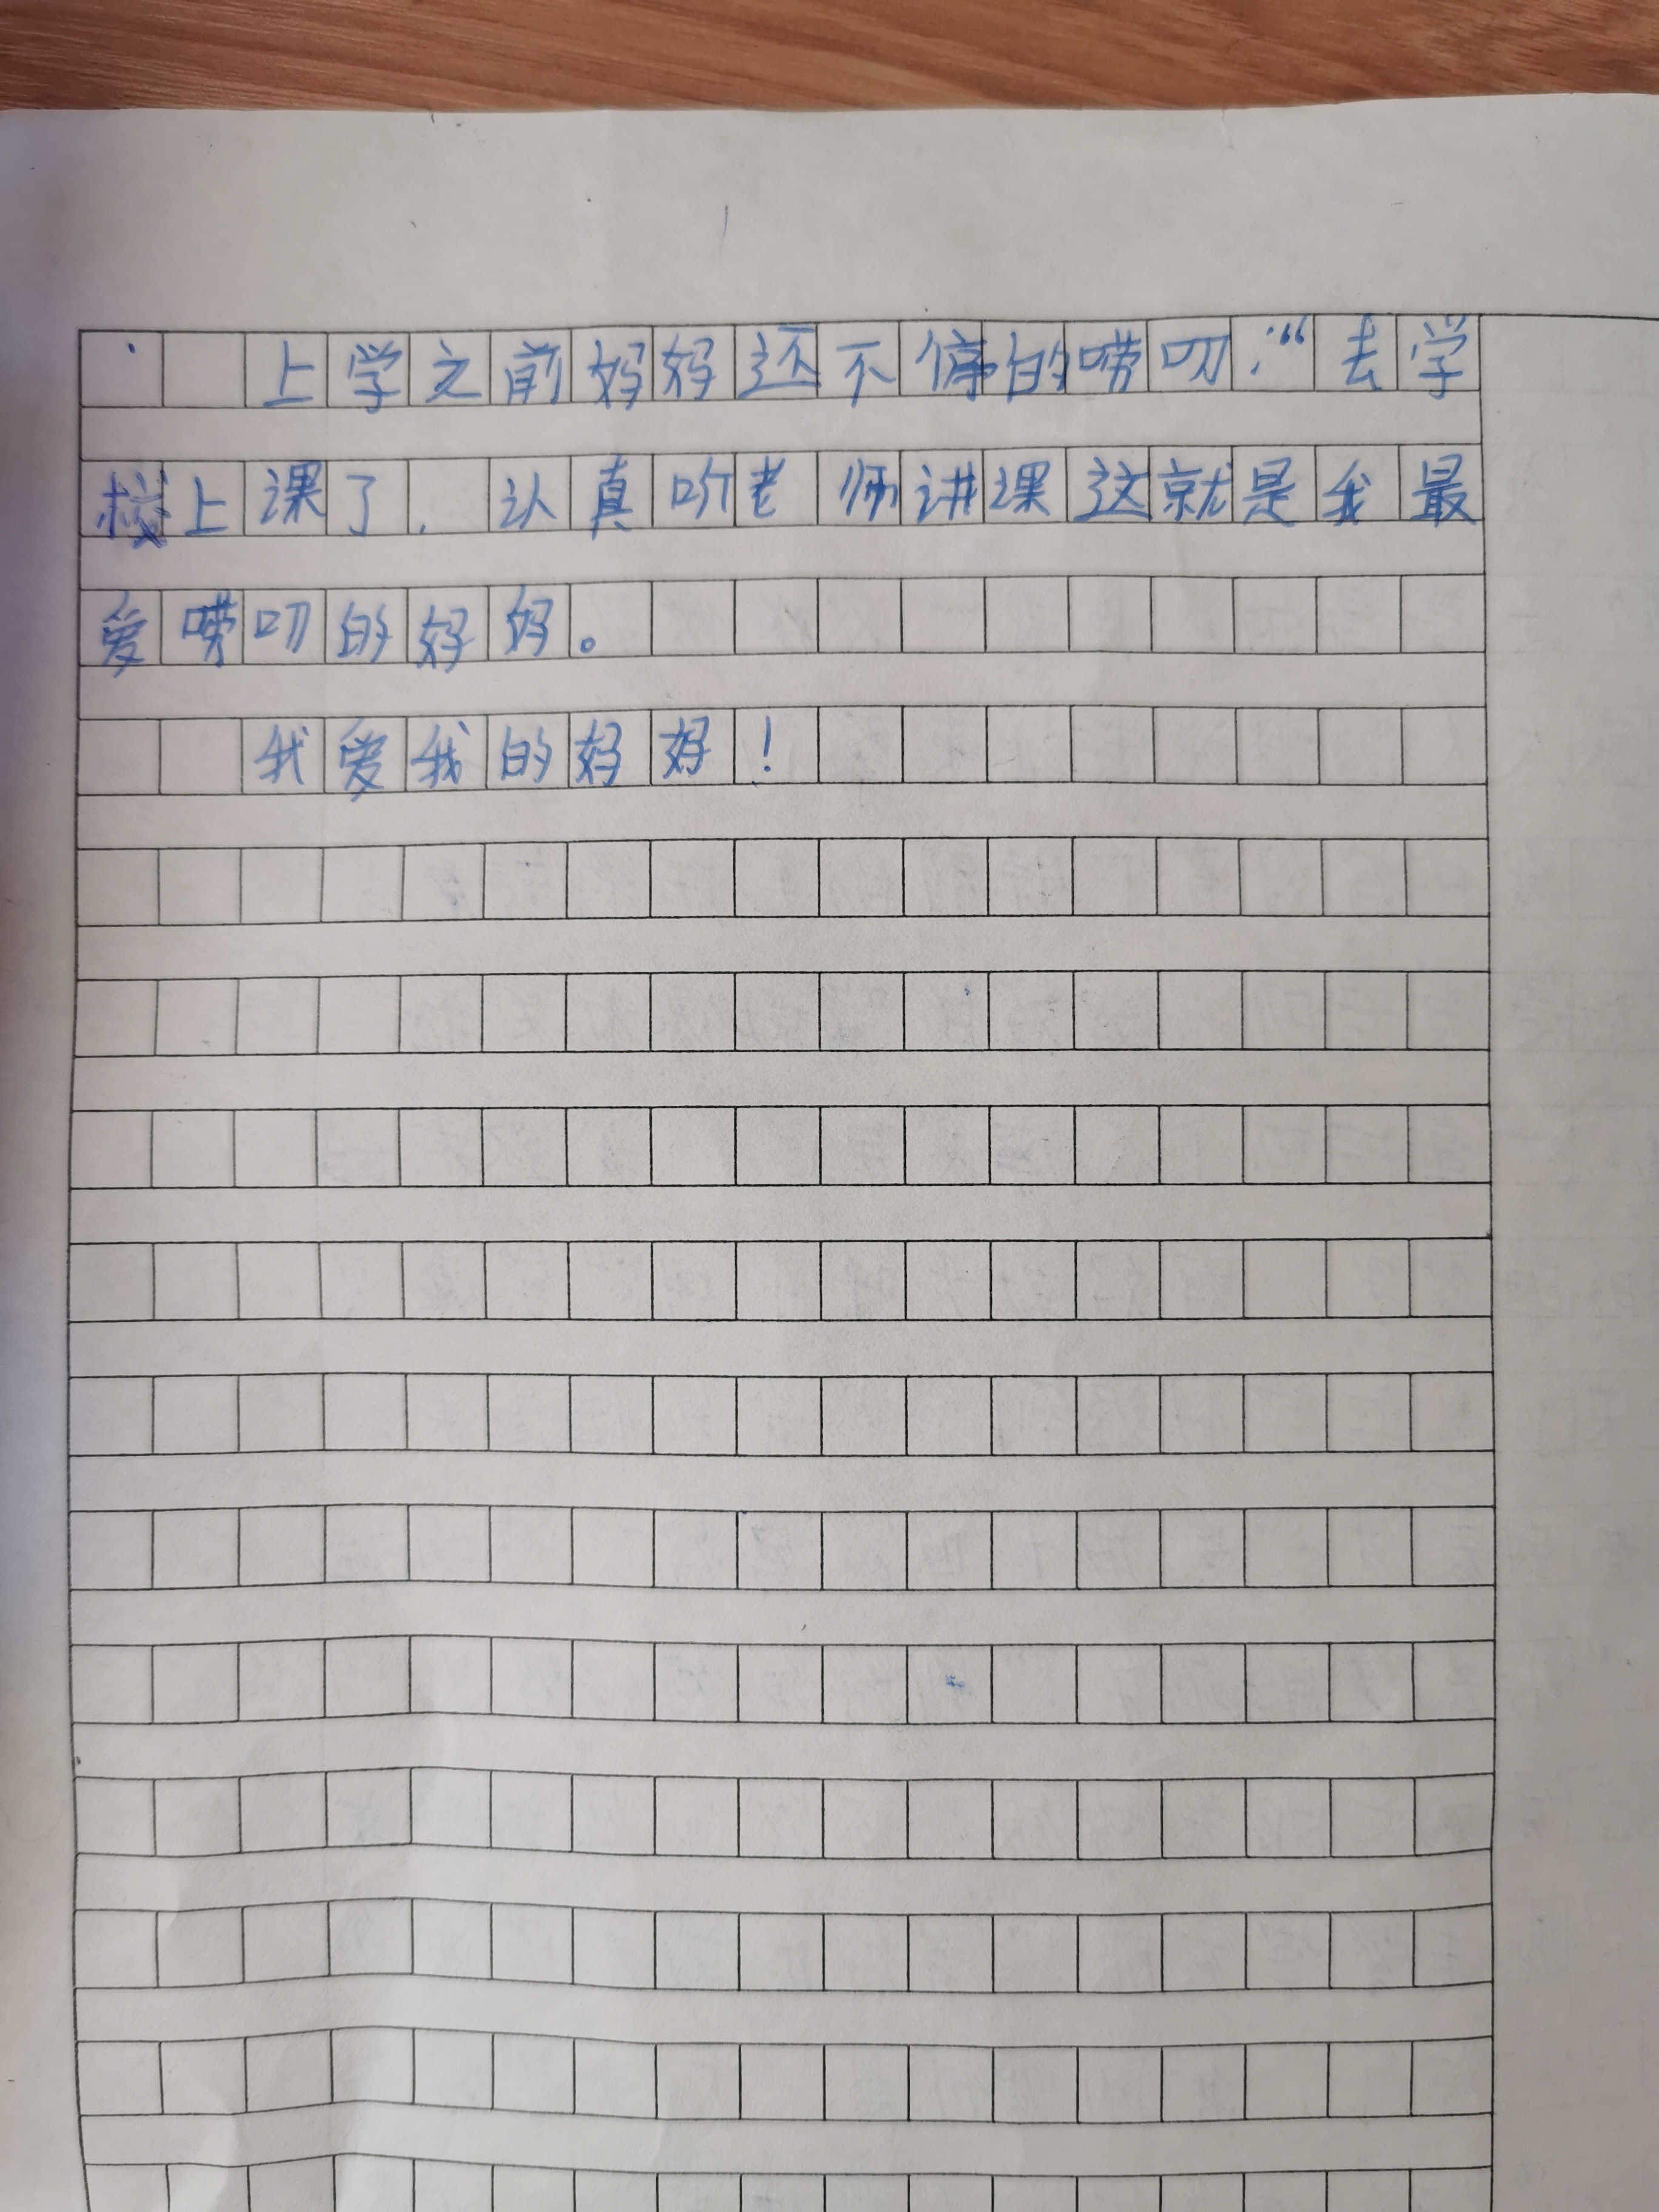 上学之前妈妈还不停的唠叨:“去学
校上课了.认真听老师讲课这就是我最
爱唠叨的妈妈。
我爱我的妈妈!